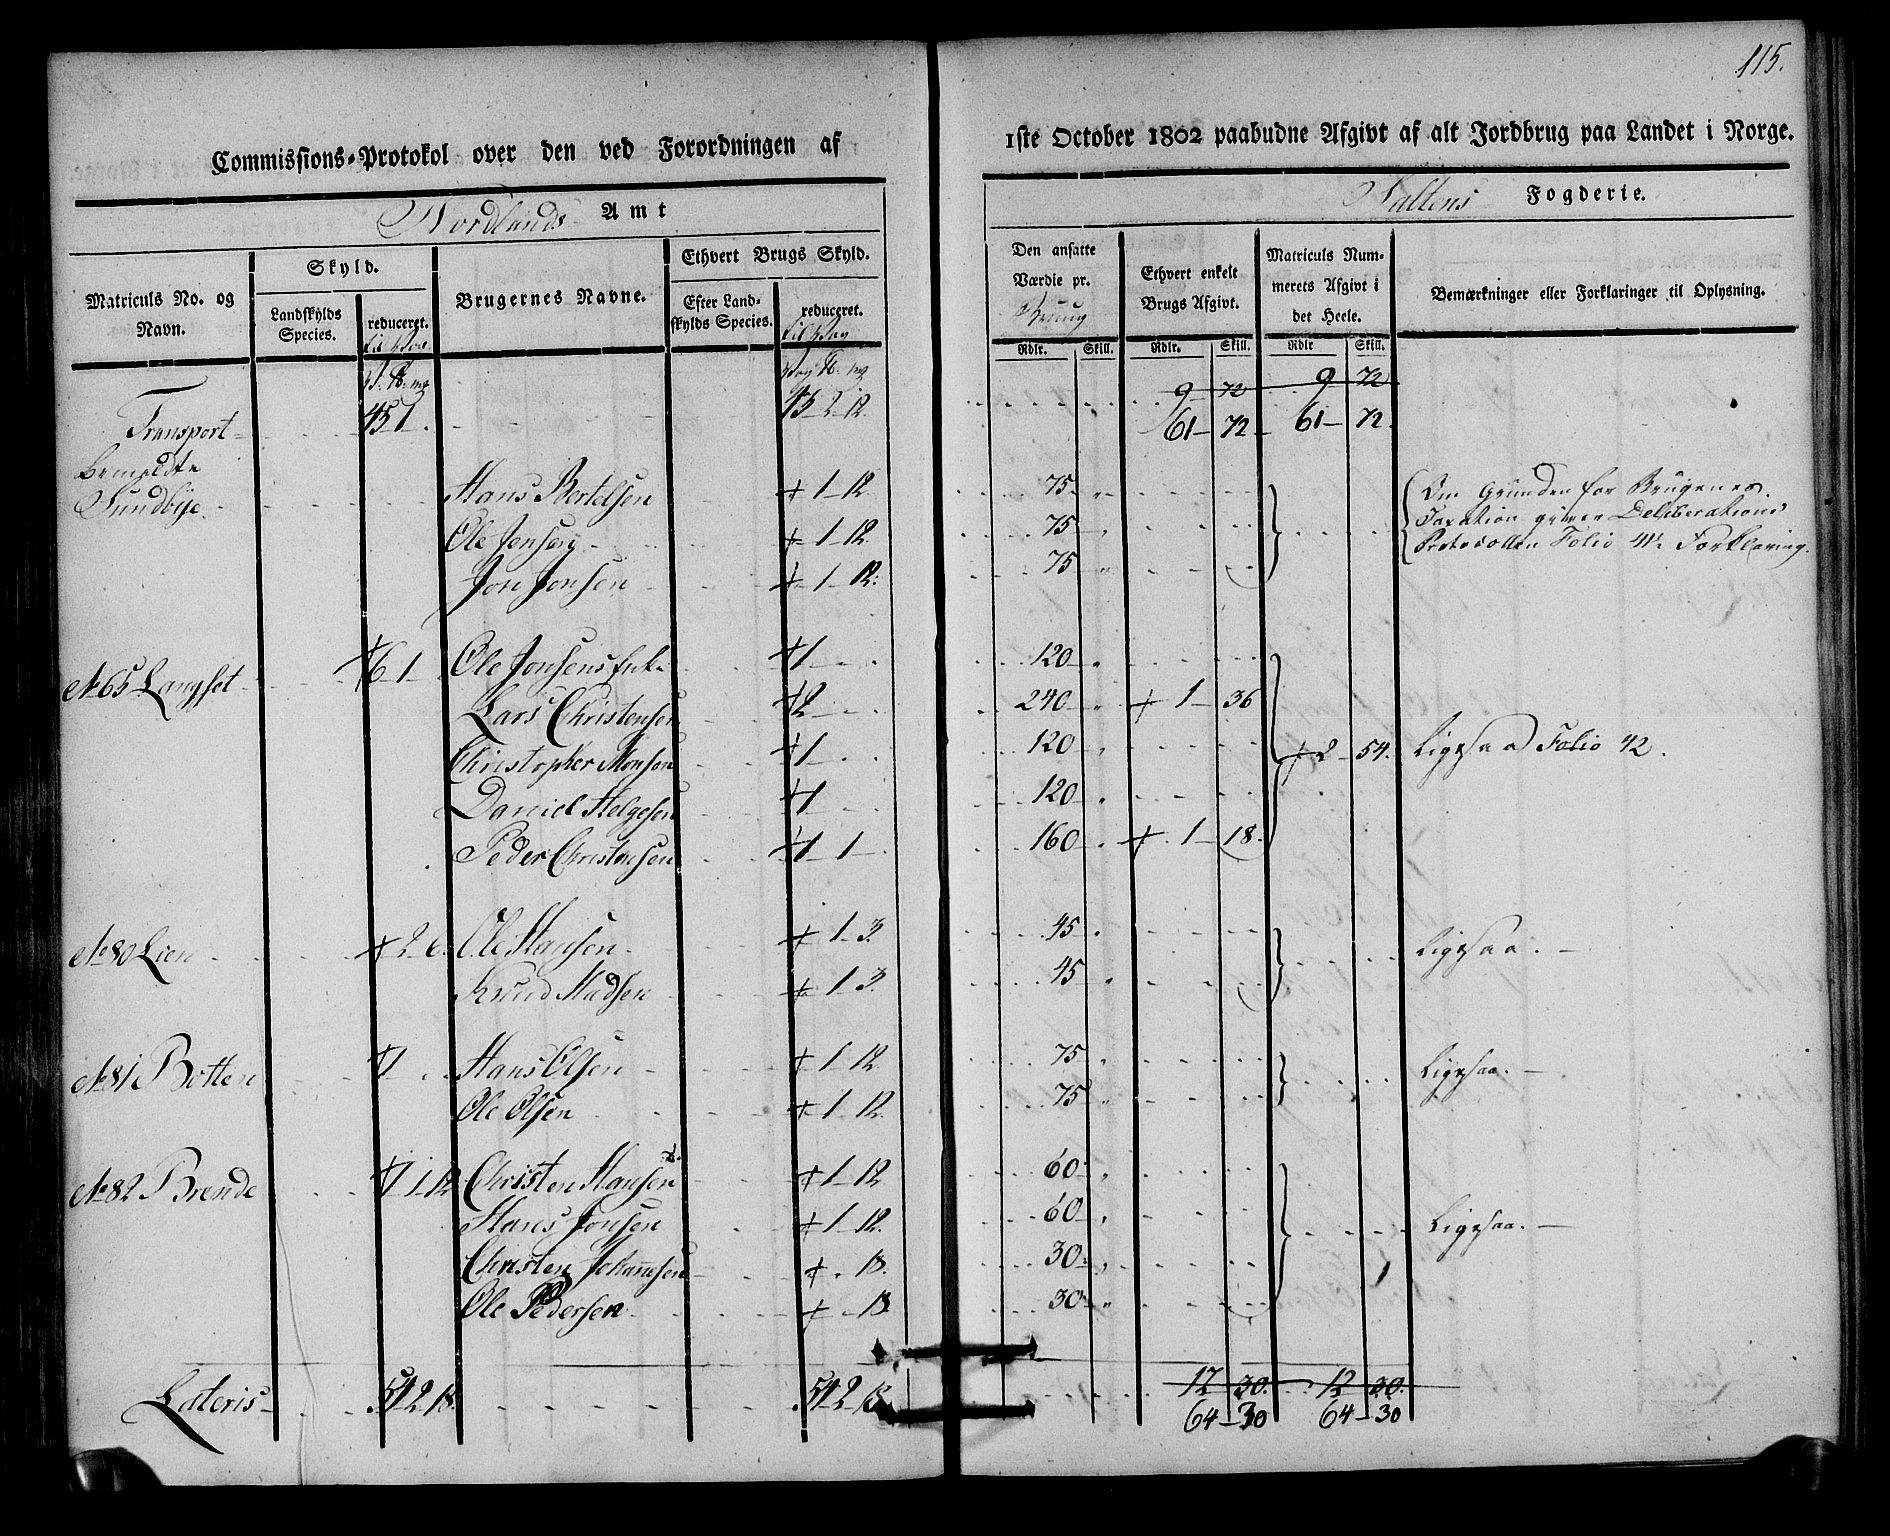 115.
Commissions-Protokol over den ved Forordningen af
1ste October 1802 paabudne Afgivt af alt Jordbrug paa Landet i Norge.
Nordlands Amt
Saltens Fogderie.
Matriculs No. og Navn.
Skyld.
Landskylds Species.
reduceret.
Brugernes Navne.
Ethvert Brugs Skyld.
Efter Landskylds Species.
reduceret.
Den ansatte Værdie pr.
Ethvert enkelt Brugs Afgivt.
Matriculs Nummerets Afgivt i det Heele.
Bemærkninger eller Forklaringer til Oplysning.
Rdlr. Skill. Rdlr. Skill. Rdlr Skill.
9 72 9 72
Transport 45 1 45 2 12 61 72 61 72
Bemeldte
Sundbye Hans Bertelsen + 1 12 75 Om Grunden for Brugenes
Ole Jensen + 1 12 75 Taxation giver Deliberations
Jon Jonsen + 1 12 75 Protocollen Folio 41 Forklaring.
No 65 Langset 6 1 Ole Jonsens Enke 1 120
Lars Christensen 2 240 + 1 36
Christopher Monsen 1 120 + 2 54 Ligesaa Folio 42.
Daniel Helgesen 1 120
Peder Christensen 1 1 160 + 1 18
No 80 Lien + 2 6 Ole Hansen + 1 3 45 Ligesaa.
Knud Madsen + 1 3 45
No 81 Botten 1 Hans Olsen + 1 12 75 Ligesaa.
Ole Olsen + 1 12 75
No 82 Brende 1 1 12 Christen Hansen + 1 12 60
Hans Jonsen + 1 12 60 Ligesaa.
Christen Johannesen + 18 30
Ole Pedersen + 18 30
12 30 12 30
Lateris 54 2 18 54 2 18 64 30 64 30